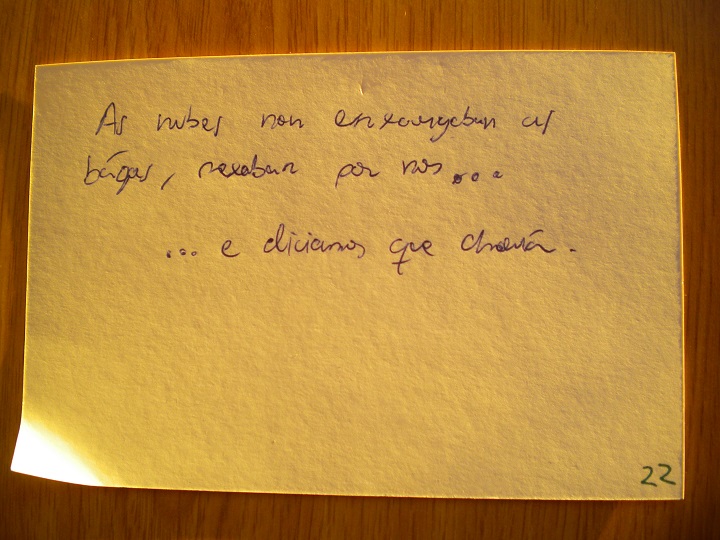 As nubes non enxaugaban as
bágoas, mexaban por nós...
... e diciamos que chovía.
22